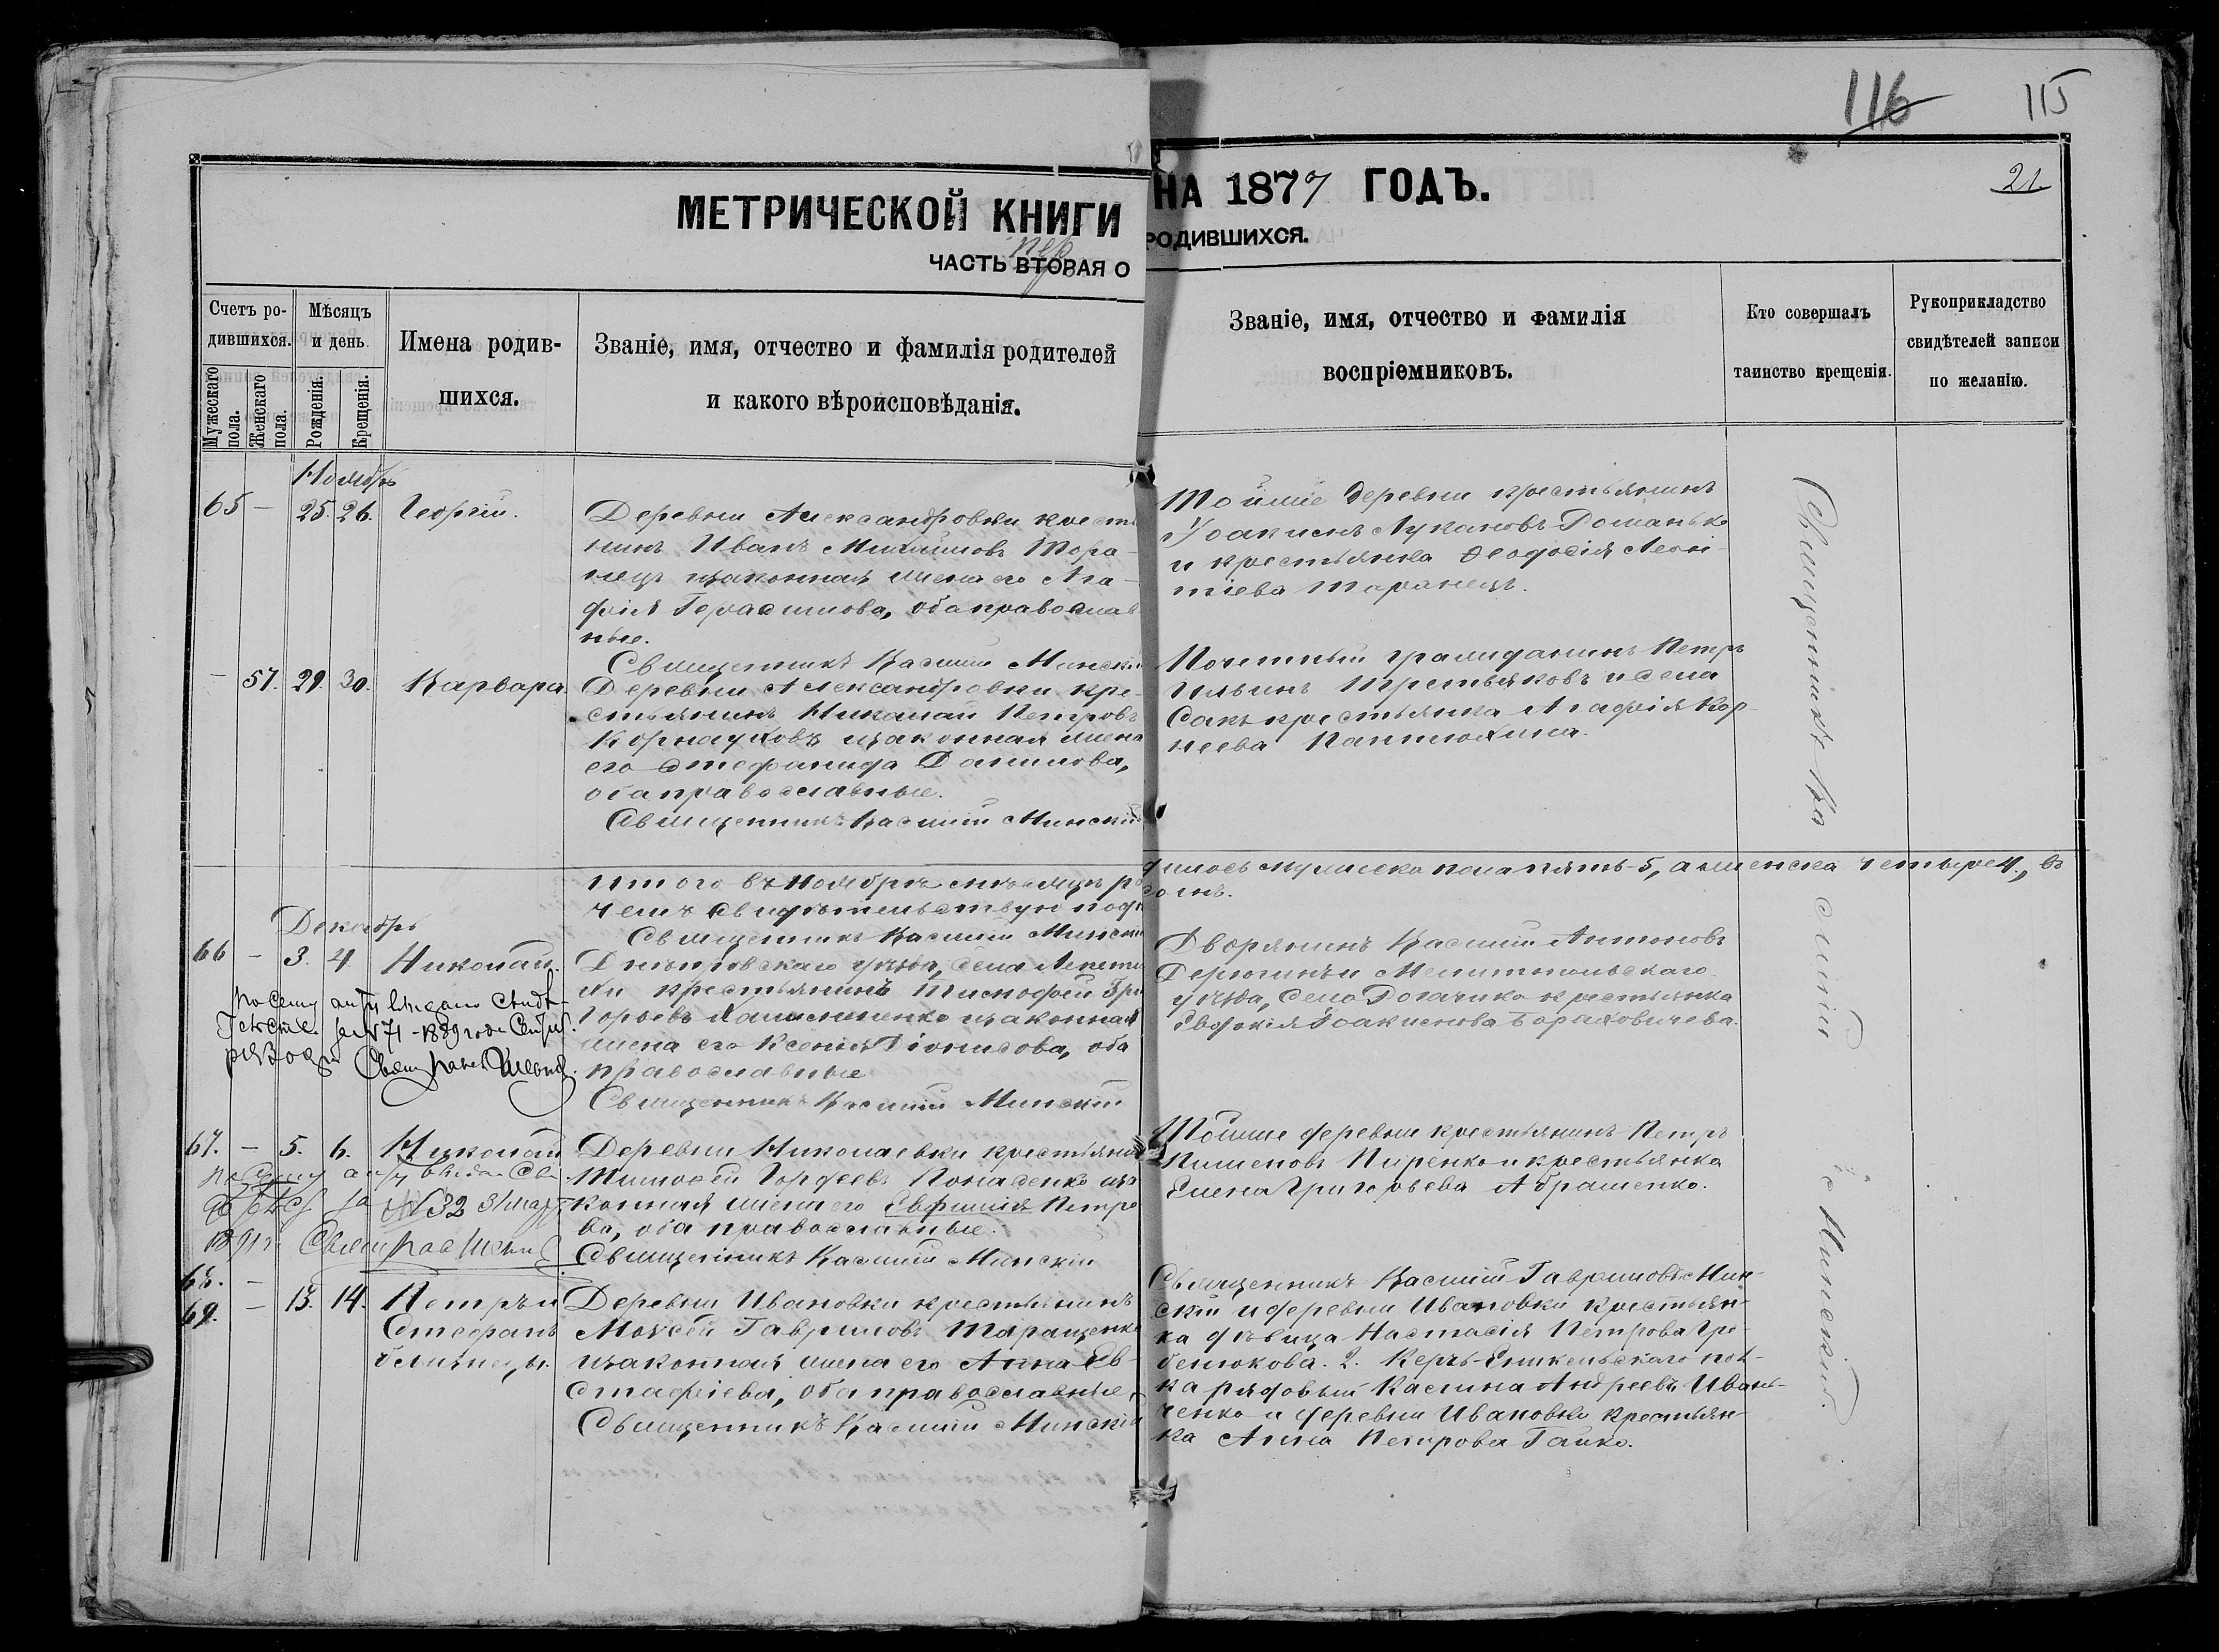 116 115
21
МЕТРИЧЕСКОЙ КНИГИ НА 1877 ГОДЪ.
ЧАСТЬ ВТОРАЯ О РОДИВШИХСЯ.
пер
Счетъ ро-
дившихся.
Мужескаго пола.
Женскаго пола.
Мѣсяцъ
и день
Рожденія.
Крещенія.
Имена родив-
шихся.
Званіе, имя, отчество и фамилія родителей
и какого вѣроисповѣданія.
Званіе, имя, отчество и фамилія
воспріемниковъ.
Кто совершалъ
таинство крещенія.
Рукоприкладство
свидѣтелей записи
по желанію.
Ноябрь
65 — 25. 26. Георгій.
Деревни Александровки кресть
нинъ Иванъ Михаиловъ Тара-
нецъ изаконная жена его Ага-
фія Герасимова, оба православ
ные.
Священникъ Василій Минскій
Тойже деревни крестьянинъ
Іоакимъ Лукановъ Романько
и крестьянка Ѳеодосія Леон-
тіева Таранецъ.
— 57. 29. 30. Варвара.
Деревни Александровки кре-
стьянинъ Николай Петровъ
Корнауховъ изаконная жена
его Стефанида Данилова,
оба православные.
Священникъ Василій Минскій
Почетный гражданинъ Петръ
Ильинъ Третьяковъ и села
Сакъ крестьянка Агафія Кор-
неева Пантюхина.
Итого въ Ноябрѣ мѣсяцѣ ро
дилось мужеска пола пять-5, а женска четыре 4., въ
чемъ свидѣтельствую подп
Священникъ Василій Минскій
Декабрь
66 — 3. 4 Николай.
Днѣпровскаго уѣзда, села Лепети
хи крестьянинъ Тимофей Гри
горьевъ изаконная
жена его Ксенія Діонисова, оба
православные
Священникъ Василій Минскій
Дворянинъ Василій Антоновъ
Дерюгинъ и Мелитопольскаго
уѣзда, села Рогачика крестьянка
Евдокія Іоакимова
по сему акту выдано свидѣ-
за №71-1889 года
67. — 5. 6. Николай
Деревни Николаевки крестьянинъ
Гордеевъ иза
конная жена его Евфимія Петро
ва, оба православные.
Священникъ Василій Минскій
Тойже деревни крестьянинъ Петръ
Пименовъ Пиренко и крестьянка
Елена Григорьева Абрашенко.
по сему акту выдано
за №32 31 мар
1891г.
68. —
69. — 13. 14. Петръ и
Стефанъ
близнецы.
Деревни Ивановки крестьянинъ
Моѵсей Гавриловъ Таращенко
изаконная жена его Анна Ев-
стафіева, оба православные,
Священникъ Василій Минскій
Священникъ Василій Гавриловъ Мин-
скій и деревни Ивановки крестьян-
ка дѣвица Настасія Петрова Гре-
бенюкова. 2. Керчь-Еникольскаго пол-
ка рядовый Касіянъ Андреевъ Иван-
ченко и деревни Ивановки крестьян-
ка Анна Петрова Гайко.
Священникъ Василій Минскій.